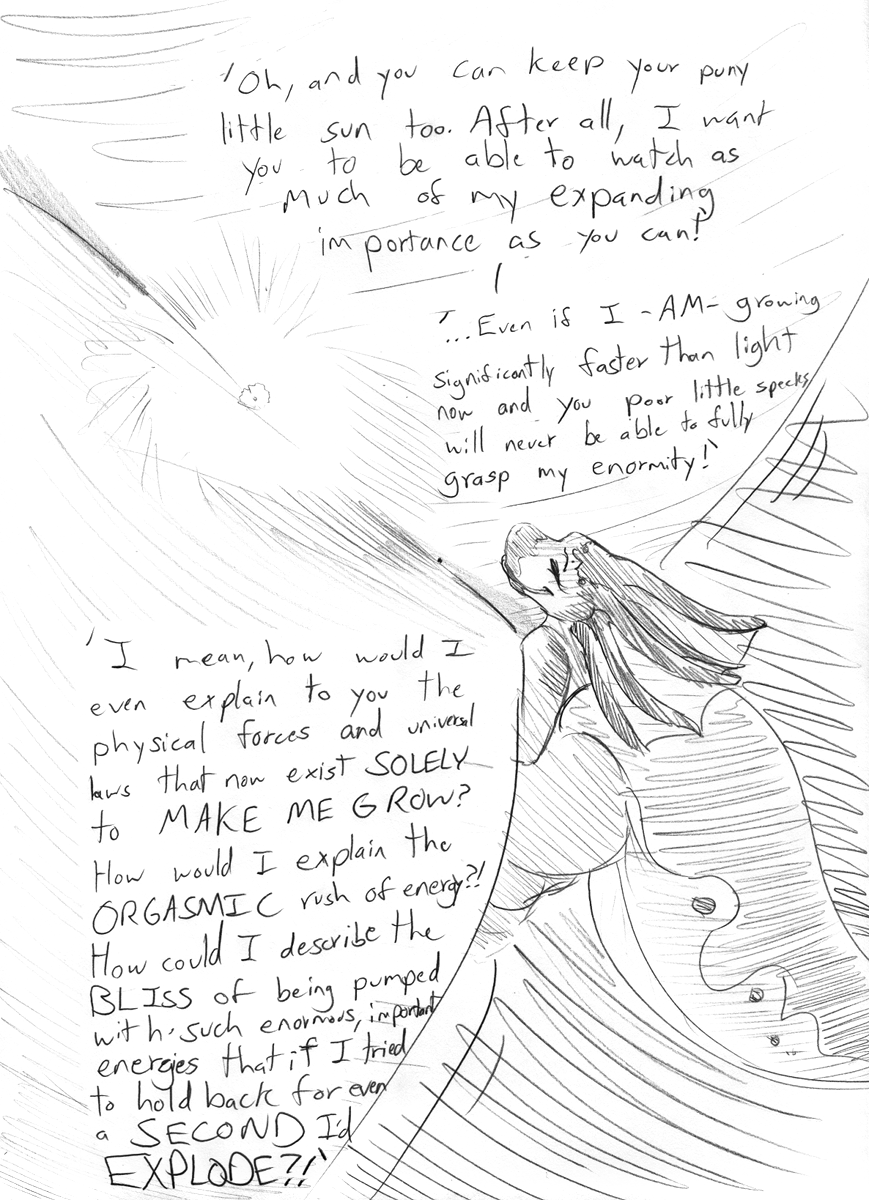 'Oh, and you can keep your puny
little sun too. After all, I want
you to be able to watch as
much of my expanding
importance as you can!'
'...Even if I -AM- growing
significantly faster than light
now and you poor little specks
will never be able to fully
grasp my enormity!'
'I mean, how would I
even explain to you the
physical forces and universal
laws that now exist SOLELY
to MAKE ME GROW?
How would I explain the
ORGASMIC rush of energy?!
How could I describe the
BLISS of being pumped
with such enormous, important
energies that if I tried
to hold back for even
a SECOND I'd
EXPLODE?!'